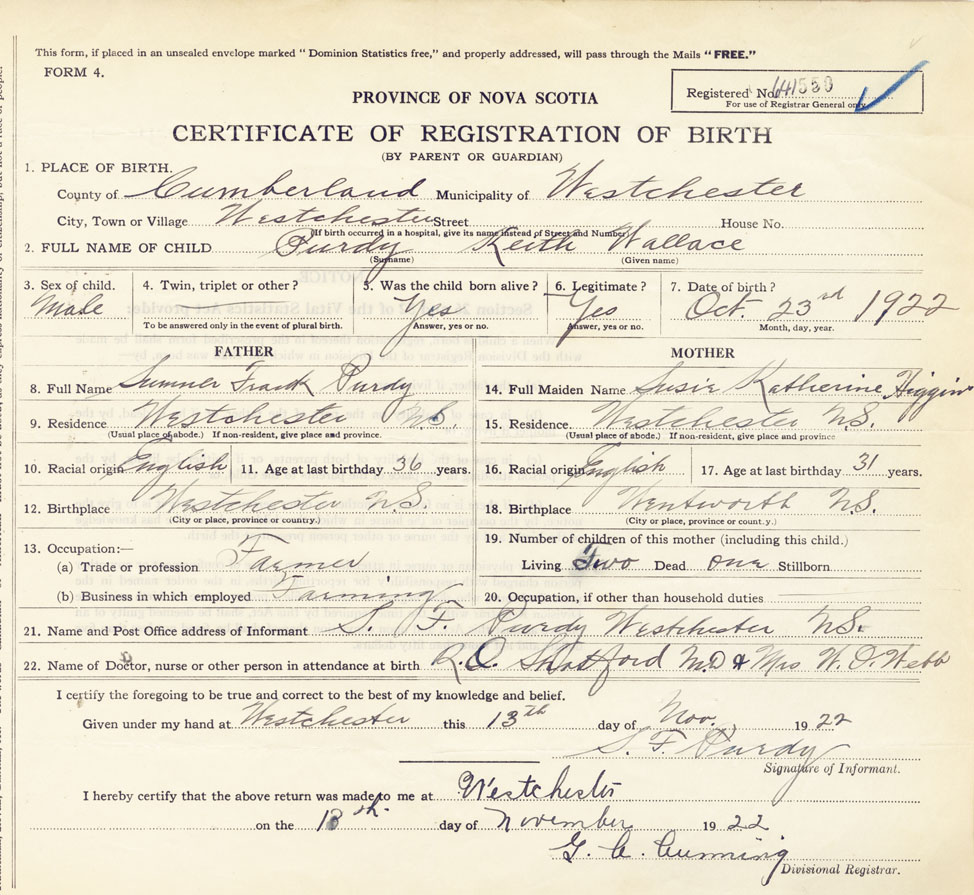 This form, if placed in an unsealed envelope marked "Dominion Statistics free," and properly addressed, will pass through the Mails "FREE."
FORM 4.
Registered No. 641550
For use of Registrar General only
PROVINCE OF NOVA SCOTIA
CERTIFICATE OF REGISTRATION OF BIRTH
(BY PARENT OR GUARDIAN)
1. PLACE OF BIRTH.
County of Cumberland Municipality of Westchester
City, Town or Village Westchester Street House No.
(If birth occurred in a hospital, give its name instead of Street and Number)
2. FULL NAME OF CHILD Purdy Keith Wallace
(Surname) (Given name)
3. Sex of child. 4. Twin, triplet or other? 5. Was the child born alive? 6. Legitimate? 7. Date of birth?
Male Yes Yes Oct. 23rd 1922
To be answered only in the event of plural birth. Answer, yes or no. Answer, yes or no. Month, day, year.
FATHER MOTHER
8. Full Name Sumner Frank Purdy 14. Full Maiden Name Susie Katherine Higgins
9. Residence Westchester N.S. 15. Residence Westchester N.S.
(Usual place of abode.) If non-resident, give place and province. (Usual place of abode.) If non-resident, give place and province
10. Racial origin English 11. Age at last birthday 36 years. 16. Racial origin English 17. Age at last birthday 31 years.
12. Birthplace Westchester N.S. 18. Birthplace Wentworth N.S.
(City or place, province or country.) (City or place, province or coun.y.)
13. Occupation:— 19. Number of children of this mother (including this child.)
(a) Trade or profession Farmer Living Two Dead one Stillborn
(b) Business in which employed Farming 20. Occupation, if other than household duties
21. Name and Post Office address of Informant S. F. Purdy Westchester N.S.
22. Name of Doctor, nurse or other person in attendance at birth R.O. Shatford M.D & Mrs W. O. Webb
I certify the foregoing to be true and correct to the best of my knowledge and belief.
Given under my hand at Westchester this 13th day of Nov. 1922
S. F. Purdy
Signature of Informant.
I hereby certify that the above return was made to me at Westchester
on the 13th day of November 1922
G. C. Cumming
Divisional Registrar.